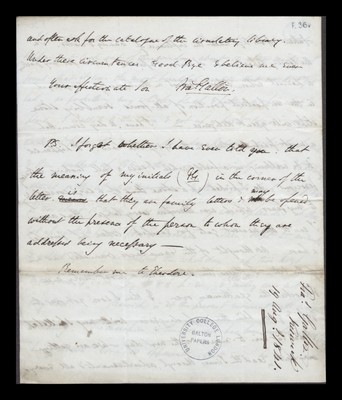 and often ask for the catalogue of the circulating library.
Under these circumstances. Good Bye & believe me ever
Your affectionate Son Fra.s Galton
PS. I forget whether I have ever told you. that
the meaning of my initials in the corner of the
letter is that they are family letters & may be opened
without the presence of the person to whom they are
addressed being necessary —
Remember me to Theodore.
UNIVERSITY COLLEGE LONDON
GALTON
PAPERS
Fra.s Galton
19 Aug.t 1841.